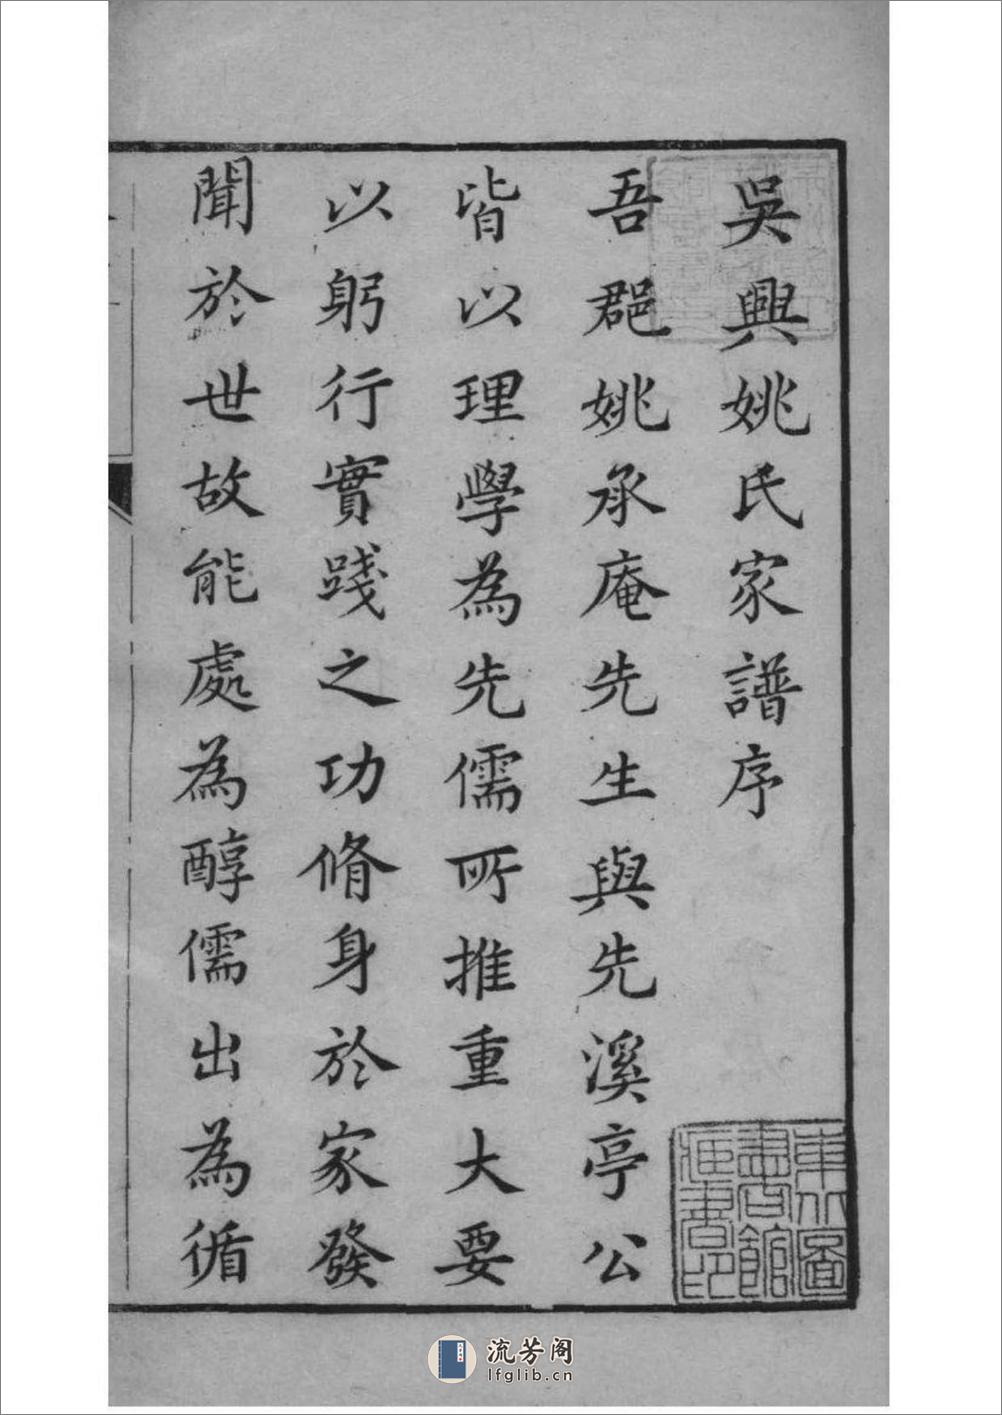 吳興姚氏家譜序
吾郡姚承庵先生與先溪亭公
皆以理學為先儒所推重大要
以躬行實踐之功脩身於家發
聞於世故能處為醇儒出為循
東北圖
書館
藏書印
流芳阁
lfglib.cn